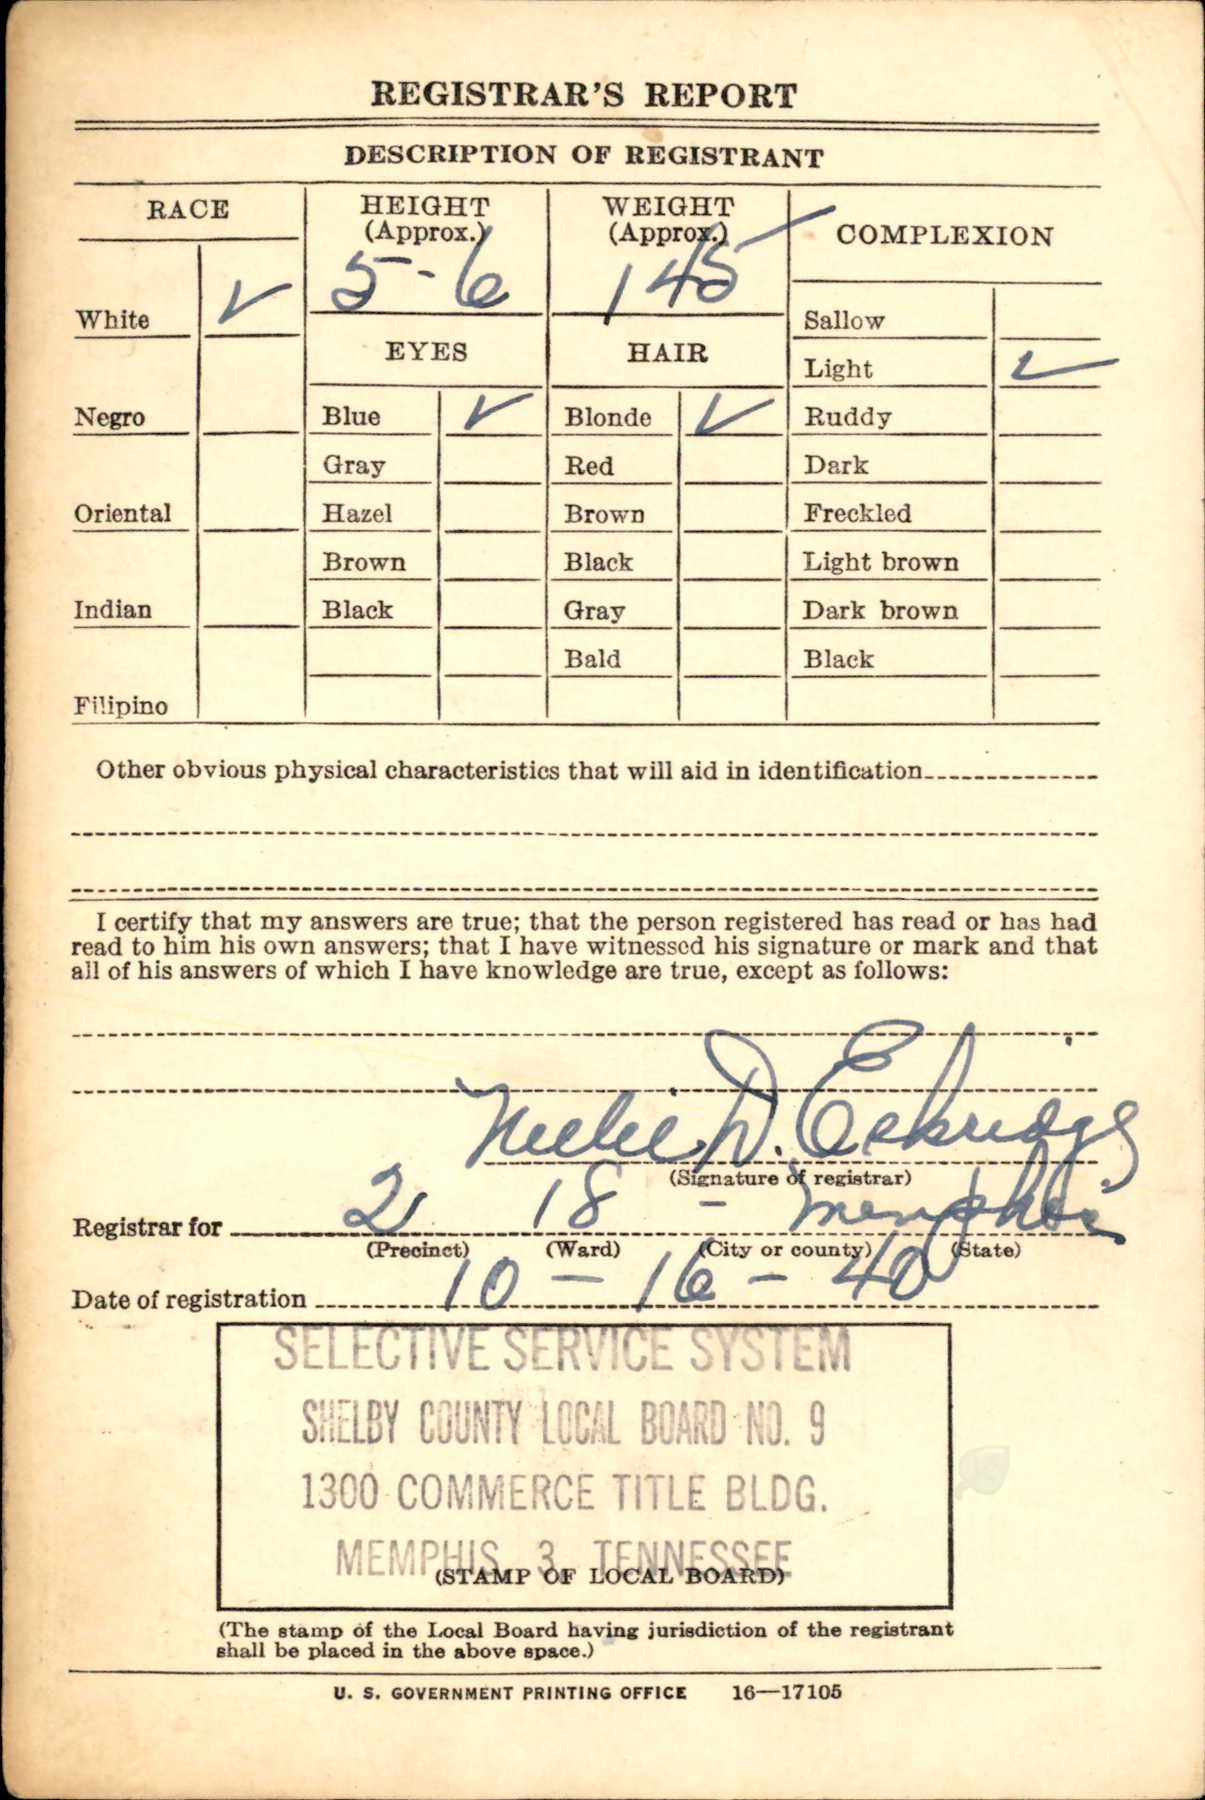 REGISTRAR'S REPORT
DESCRIPTION OF REGISTRANT
RACE HEIGHT (Approx.) WEIGHT (Approx.) COMPLEXION
5-6 145
White ✓ Sallow
EYES HAIR Light ✓
Negro Blue ✓ Blonde ✓ Ruddy
Gray Red Dark
Oriental Hazel Brown Freckled
Brown Black Light brown
Indian Black Gray Dark brown
Bald Black
Filipino
Other obvious physical characteristics that will aid in identification
I certify that my answers are true; that the person registered has read or has had
read to him his own answers; that I have witnessed his signature or mark and that
all of his answers of which I have knowledge are true, except as follows:
D. Eskridge
(Signature of registrar)
Registrar for 2 18 - Memphis
(Precinct) (Ward) (City or county) (State)
Date of registration 10-16-40
SELECTIVE SERVICE SYSTEM
SHELBY COUNTY LOCAL BOARD NO. 9
1300 COMMERCE TITLE BLDG.
MEMPHIS, 3, TENNESSEE
(STAMP OF LOCAL BOARD)
(The stamp of the Local Board having jurisdiction of the registrant
shall be placed in the above space.)
U. S. GOVERNMENT PRINTING OFFICE 16—17105